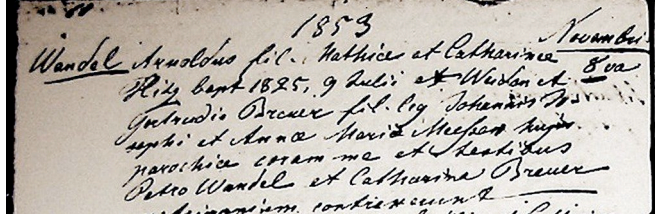 1853
Novembri
Wandel Arnoldus fil. Mathice et Catharince 8va
Hitz bapt 1825, 9 Julii et Weiden et
Gertrudis Breuer fil. leg Johannis
sephi et Annœ Maria Meessen hujus
parochice coram me et testibus
Petro Wandel et Catharina Breuer
contraxerunt